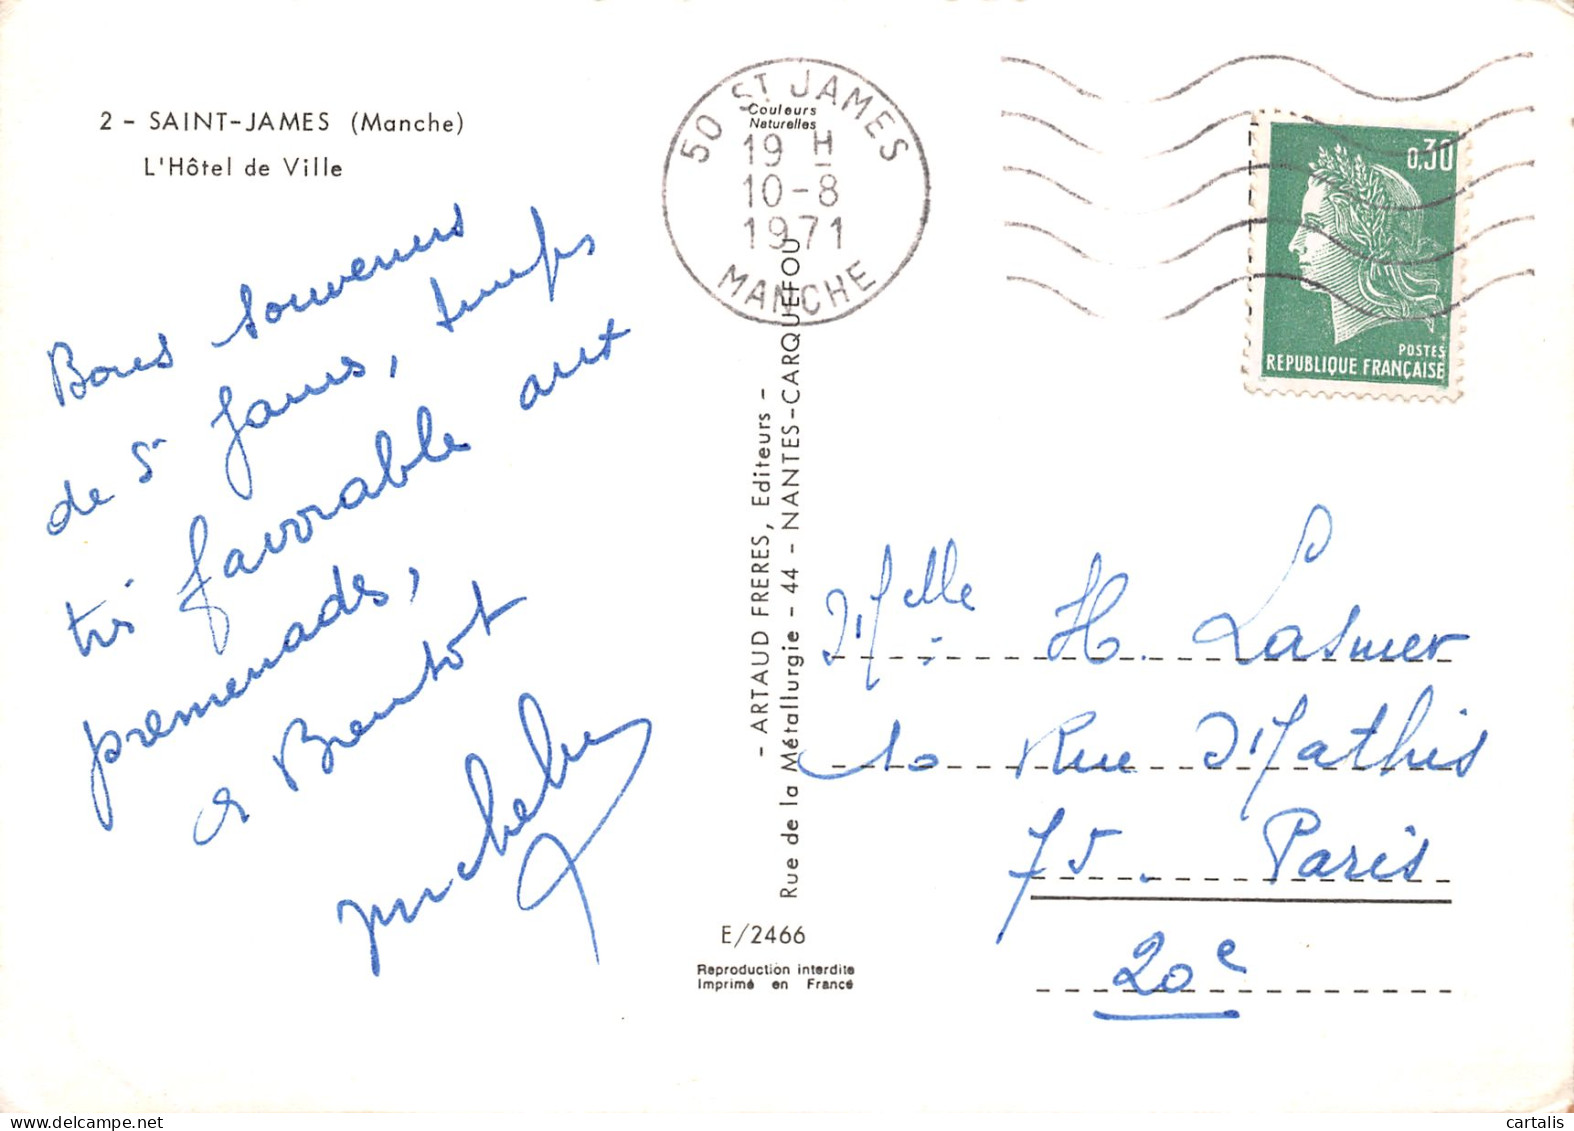 2 - SAINT-JAMES (Manche)
L'Hôtel de Ville
Bons souvenirs
de St James, temps
très favorable aux
promenades,
à Bientôt
50 ST JAMES
Couleurs
Naturelles
19 H
10-8
1971
MANCHE
0,30
POSTES
REPUBLIQUE FRANÇAISE
- ARTAUD FRERES, Editeurs -
Rue de la Métallurgie - 44 - NANTES-CARQUEFOU
E/2466
Reproduction interdite
Imprimé en France
Melle H. Lasmer
10 Rue Mathis
75. Paris
20e
cartalis